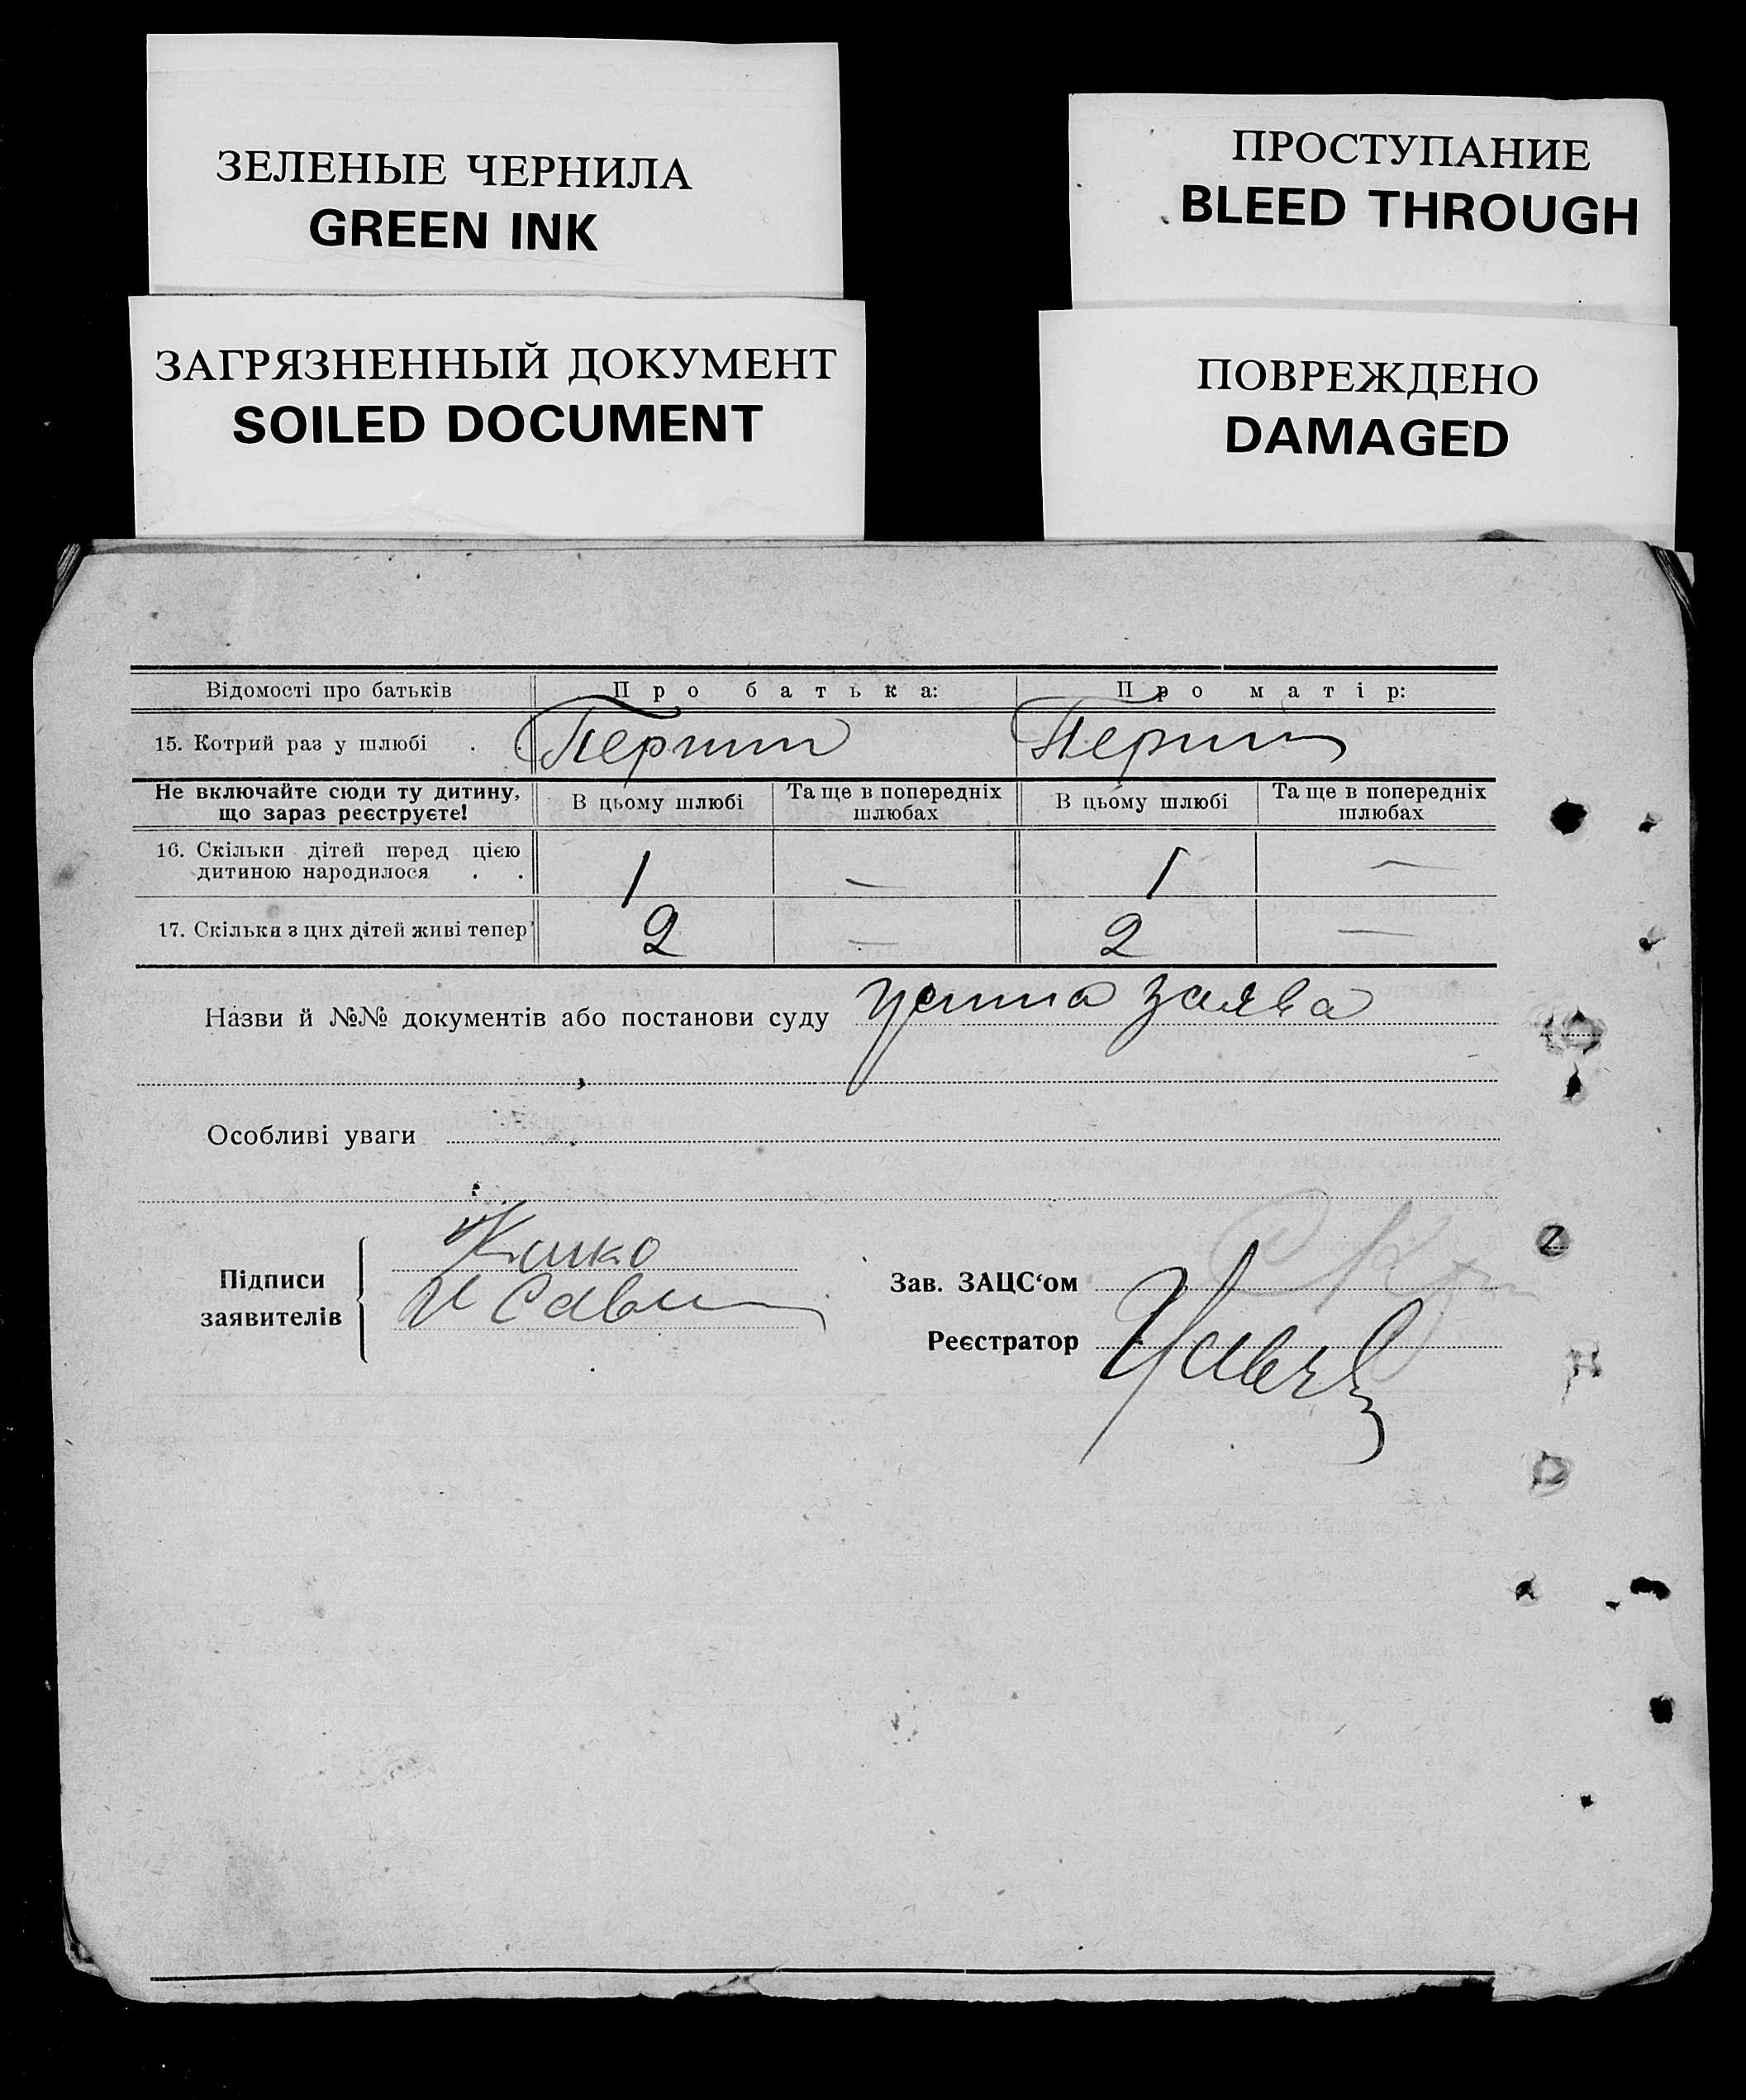 ЗЕЛЕНЫЕ ЧЕРНИЛА
GREEN INK
ПРОСТУПАНИЕ
BLEED THROUGH
ЗАГРЯЗНЕННЫЙ ДОКУМЕНТ
SOILED DOCUMENT
ПОВРЕЖДЕНО
DAMAGED
Відомості про батьків Про батька: Про матір:
15. Котрий раз у шлюбі . . Перший Перший
Не включайте сюди ту дитину, що зараз реєструєте! В цьому шлюбі Та ще в попередніх шлюбах В цьому шлюбі Та ще в попередніх шлюбах
16. Скільки дітей перед цією
дитиною народилося . . 1 — 1 —
17. Скільки з цих дітей живі тепер 2 — 2 —
Назви й №№ документів або постанови суду устна заява
Особливі уваги
Підписи
заявителів
Зав. ЗАЦС‘ом
Реєстратор